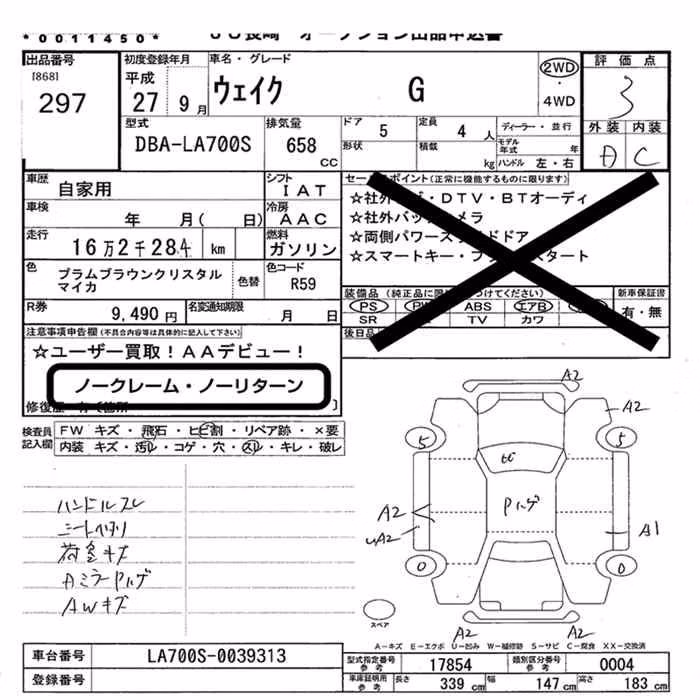 *0011450* JU長崎 オークション出品申込書
出品番号 初度登録年月 車名・グレード 2WD ・ 4WD 評価点
[868] 297 平成 27 9月 ウェイク G 3
外装 内装
A C
型式 排気量 ドア 定員 ディーラー・並行
DBA-LA700S 658 CC 5 4 人 モデル年式 年
形状 積載 kg ハンドル 左・右
車歴 自家用 シフト IAT セールスポイント(正常に機能するものに限ります)
車検 年 月( 日) 冷房 AAC
☆社外ナビ・DTV・BTオーディ
☆社外バックカメラ
走行 16万2千284 km 燃料 ガソリン
☆両側パワースライドドア
☆スマートキー・プッシュスタート
色 プラムブラウンクリスタルマイカ 色替 色コード R59
装備品 (純正品に限り○をつけてください) 新車保証書
PS PW ABS エアB 有・無
SR TV カワ
R券 9,490円 名変通知期限 月 日
後日品
注意事項申告欄(不具合内容等は具体的に記入して下さい)
☆ユーザー買取!AAデビュー!
ノークレーム・ノーリターン
修復歴 有〔箇所 〕
検査員記入欄 FW キズ・飛石・ヒビ割・リペア跡・×要
内装 キズ・汚レ・コゲ・穴・スレ・キレ・破レ
ハンドルスレ
シートヘタリ
荷室キズ
AミラーPハゲ
AWキズ
A2
A2
5 5
Pハゲ
A2
uA2 A1
0 0
A2 A2
スペア
A-キズ E-エクボ U-凹み W-補修跡 S-サビ C-腐食 XX-交換済
車台番号 LA700S-0039313
型式指定番号 参考 17854 類別区分番号 参考 0004
登録番号
車庫証明用 参考 長さ 339 cm 幅 147 cm 高さ 183 cm